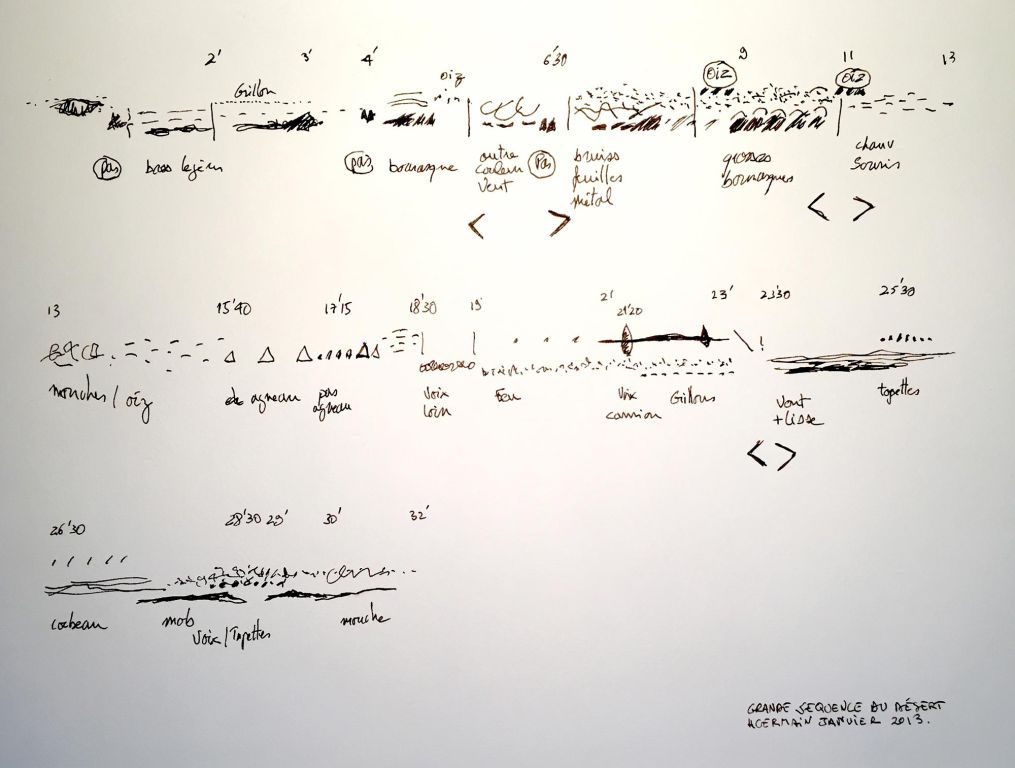 2' 3' 4' 6'30 9 11 13
Grillon oiz oiz oiz
pas bass légèr pas bourrasque
outre
couleur
vent
pas
bruiss
feuilles
métal
grosses
bourrasques
chauv
souris
< > < >
13 15'40 17'15 18'30 19' 21' 23' 23'30 25'30
21'20
mouches / oiz
agneau
pas
agneau
voix
loin
Feu
Voix
camion
Grillons
Vent
+ lisse
tapettes
< >
26'30 28'30 29' 30' 32'
corbeau mob mouche
Voix / Tapettes
GRANDE SEQUENCE DU DÉSERT
HGERMAIN JANVIER 2013.